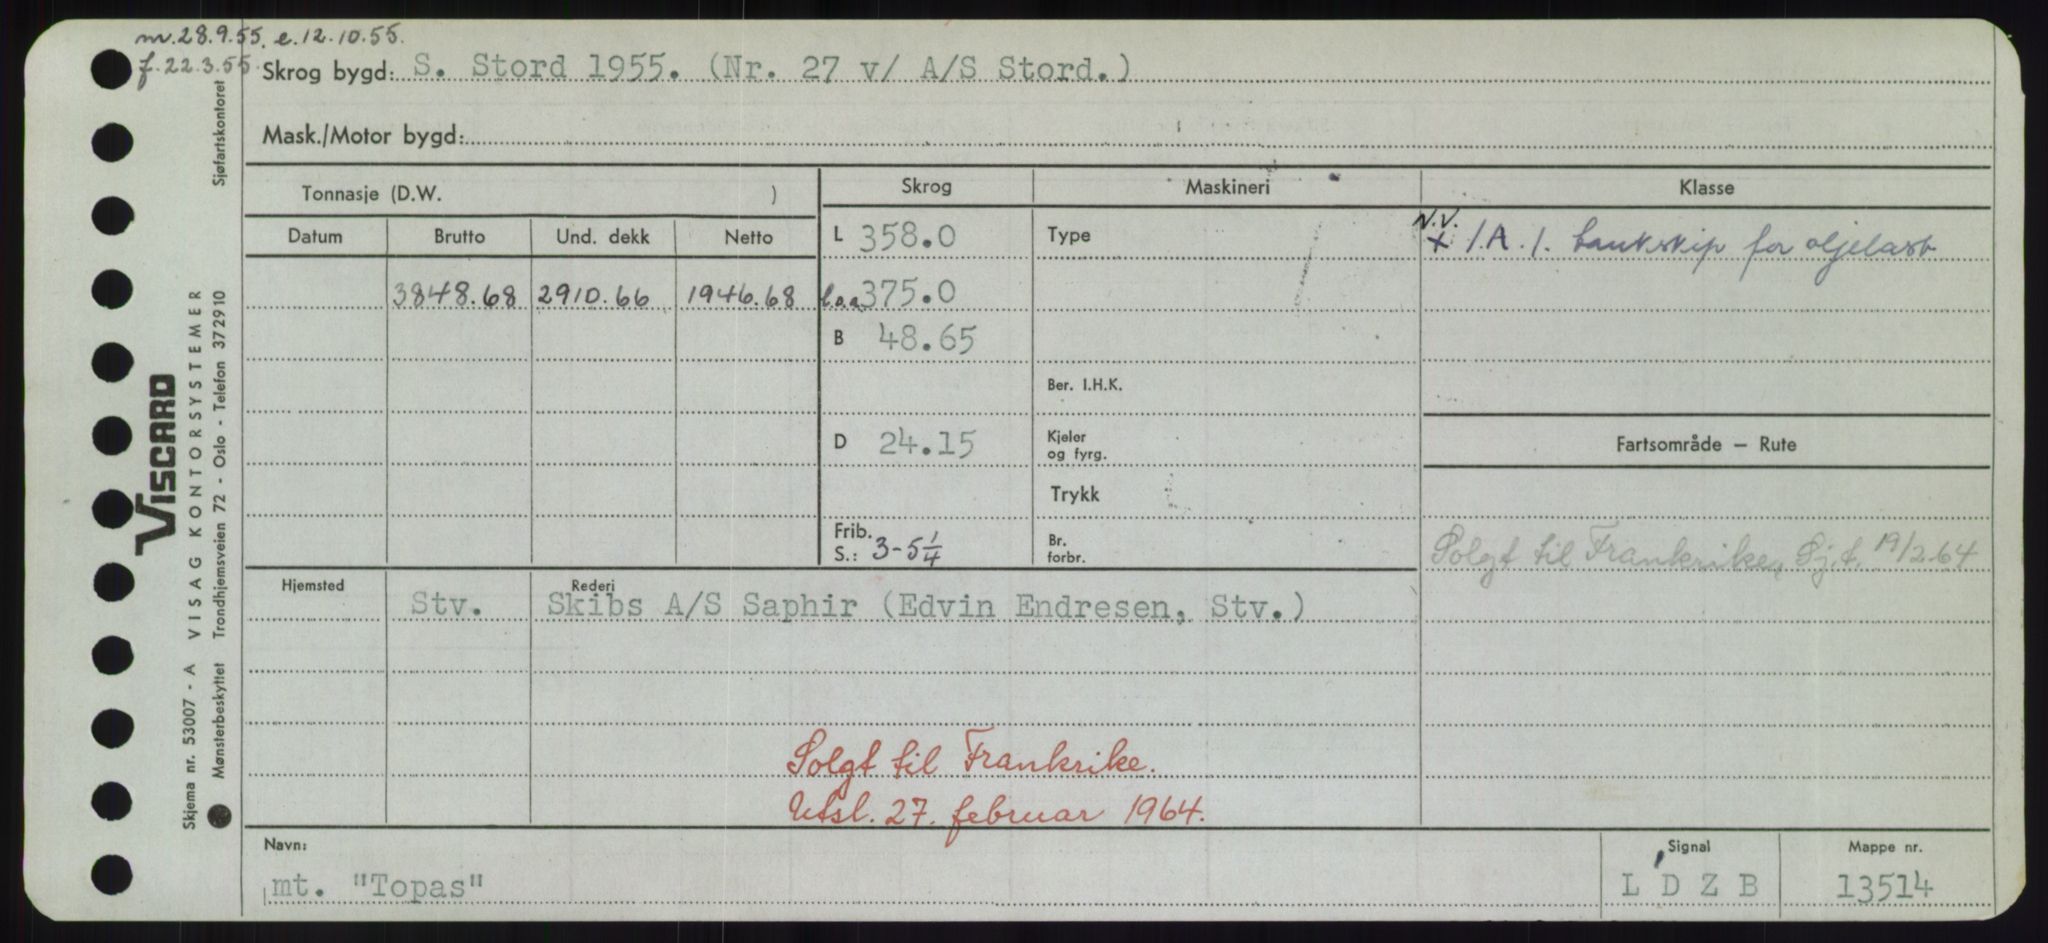 m. 28.9.55. e. 12.10.55.
f. 22.3.55.
Skrog bygd: S. Stord 1955. (Nr. 27 v/ A/S Stord.)
Mask./Motor bygd:
Tonnasje (D.W. )
Skrog
Maskineri
Klasse
Datum
Brutto
Und. dekk
Netto
L 358.0
Type
N.V.
+ 1.A.1. tankskip for oljelast
3848.68 2910.66 1946.68
l.o.a. 375.0
B 48.65
Ber. I.H.K.
D 24.15
Kjeler
og fyrg.
Fartsområde — Rute
Trykk
Frib.
S.: 3-5 1/4
Br.
forbr.
Solgt til Frankrike, Sj.f. 19/2-64
Hjemsted
Rederi
Stv. Skibs A/S Saphir (Edvin Endresen, Stv.)
Solgt til Frankrike.
Utsl. 27. februar 1964.
Navn:
mt. "Topas"
Signal
L D Z B
Mappe nr.
13514
VISCARD
VISAG KONTORSYSTEMER
Skjema nr. 53007 - A
Mønsterbeskyttet Trondhjemsveien 72 - Oslo - Telefon 372910
Sjøfartskontoret